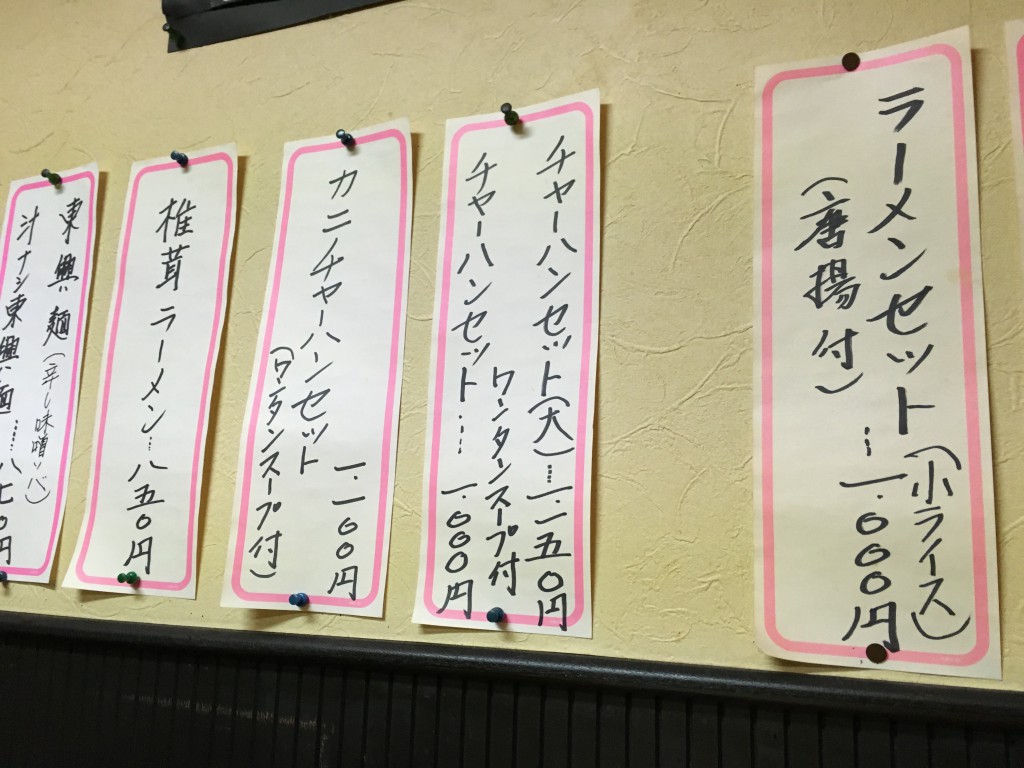 ラーメンセット(小ライス)
(唐揚付)…一.〇〇〇円
チャーハンセット(大)……一.一五〇円
ワンタンスープ付
チャーハンセット……一.〇〇〇円
カニチャーハンセット
一.一〇〇円
(ワンタンスープ付)
椎茸ラーメン…八五〇円
東興麺(辛し味噌ソバ)
汁ナシ東興麺……八七〇円